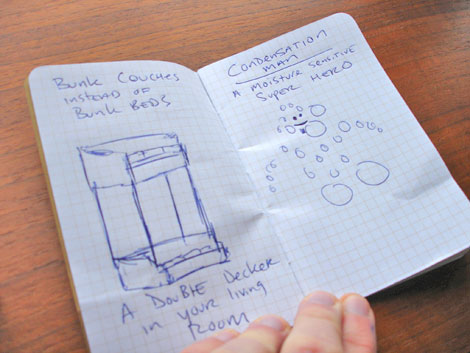 Bunk Couches
instead of
Bunk Beds
A Double Decker
in your living
Room
Condensation
Man
A moisture sensitive
Super Hero